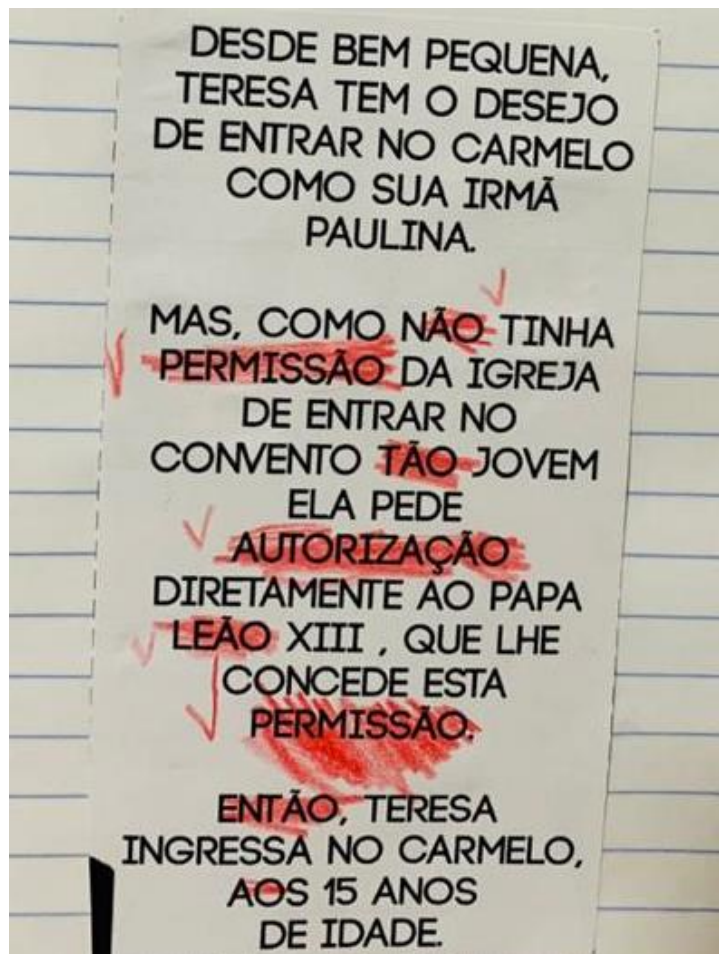 DESDE BEM PEQUENA,
TERESA TEM O DESEJO
DE ENTRAR NO CARMELO
COMO SUA IRMÃ
PAULINA.
MAS, COMO NÃO TINHA
PERMISSÃO DA IGREJA
DE ENTRAR NO
CONVENTO TÃO JOVEM
ELA PEDE
AUTORIZAÇÃO
DIRETAMENTE AO PAPA
LEÃO XIII , QUE LHE
CONCEDE ESTA
PERMISSÃO.
ENTÃO, TERESA
INGRESSA NO CARMELO,
AOS 15 ANOS
DE IDADE.